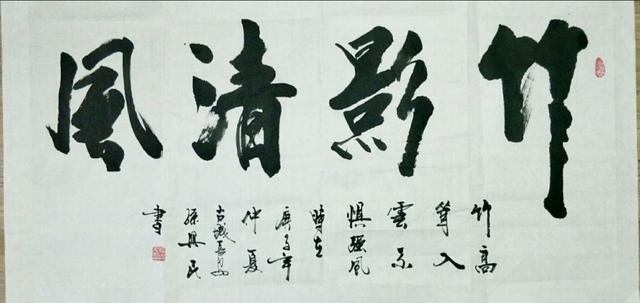 竹影清風
竹高
聳入
雲不
惧強風
時在
庚子年
仲夏
古城長安
孫興民
書